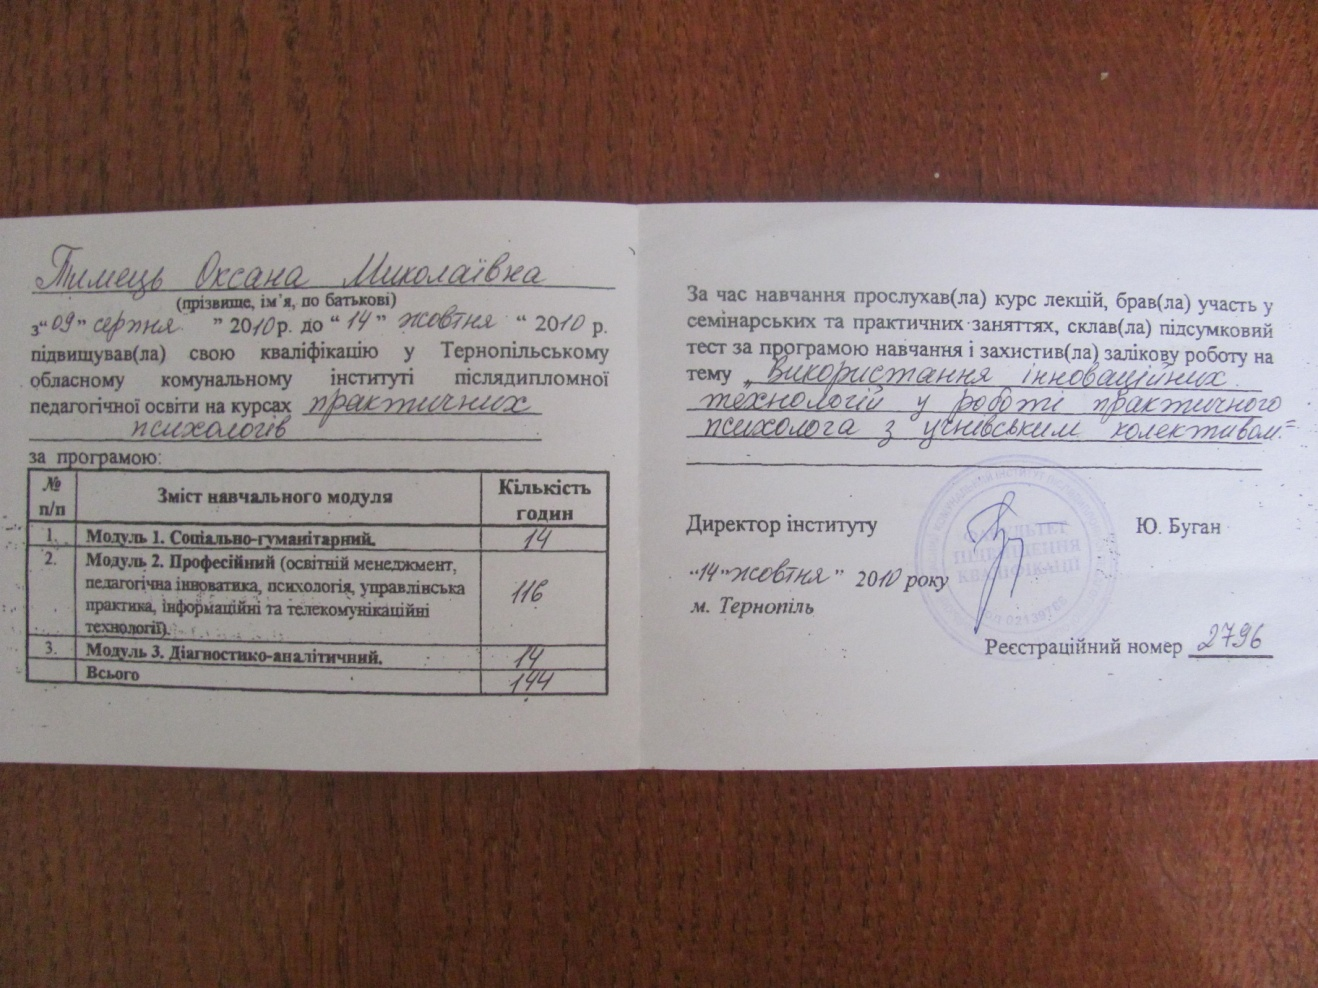 Тимець Оксана Миколаївна
(прізвище, ім'я, по батькові)
з "09" серпня " 2010 р. до "14" жовтня " 2010 р.
підвищував(ла) свою кваліфікацію у Тернопільському
обласному комунальному інституті післядипломної
педагогічної освіти на курсах практичних
психологів
за програмою:
№ п/п Зміст навчального модуля Кількість годин
1. Модуль 1. Соціально-гуманітарний. 14
2. Модуль 2. Професійний (освітній менеджмент,
педагогічна інноватика, психологія, управлінська 116
практика, інформаційні та телекомунікаційні
технології).
3. Модуль 3. Діагностико-аналітичний. 14
Всього 144
За час навчання прослухав(ла) курс лекцій, брав(ла) участь у
семінарських та практичних заняттях, склав(ла) підсумковий
тест за програмою навчання і захистив(ла) залікову роботу на
тему „Використання інноваційних
технологій у роботі практичного
психолога з учнівським колективом."
Директор інституту Ю. Буган
"14" жовтня" 2010 року
м. Тернопіль
Реєстраційний номер 2796
ФАКУЛЬТЕТ
ПІДВИЩЕННЯ
КВАЛІФІКАЦІЇ